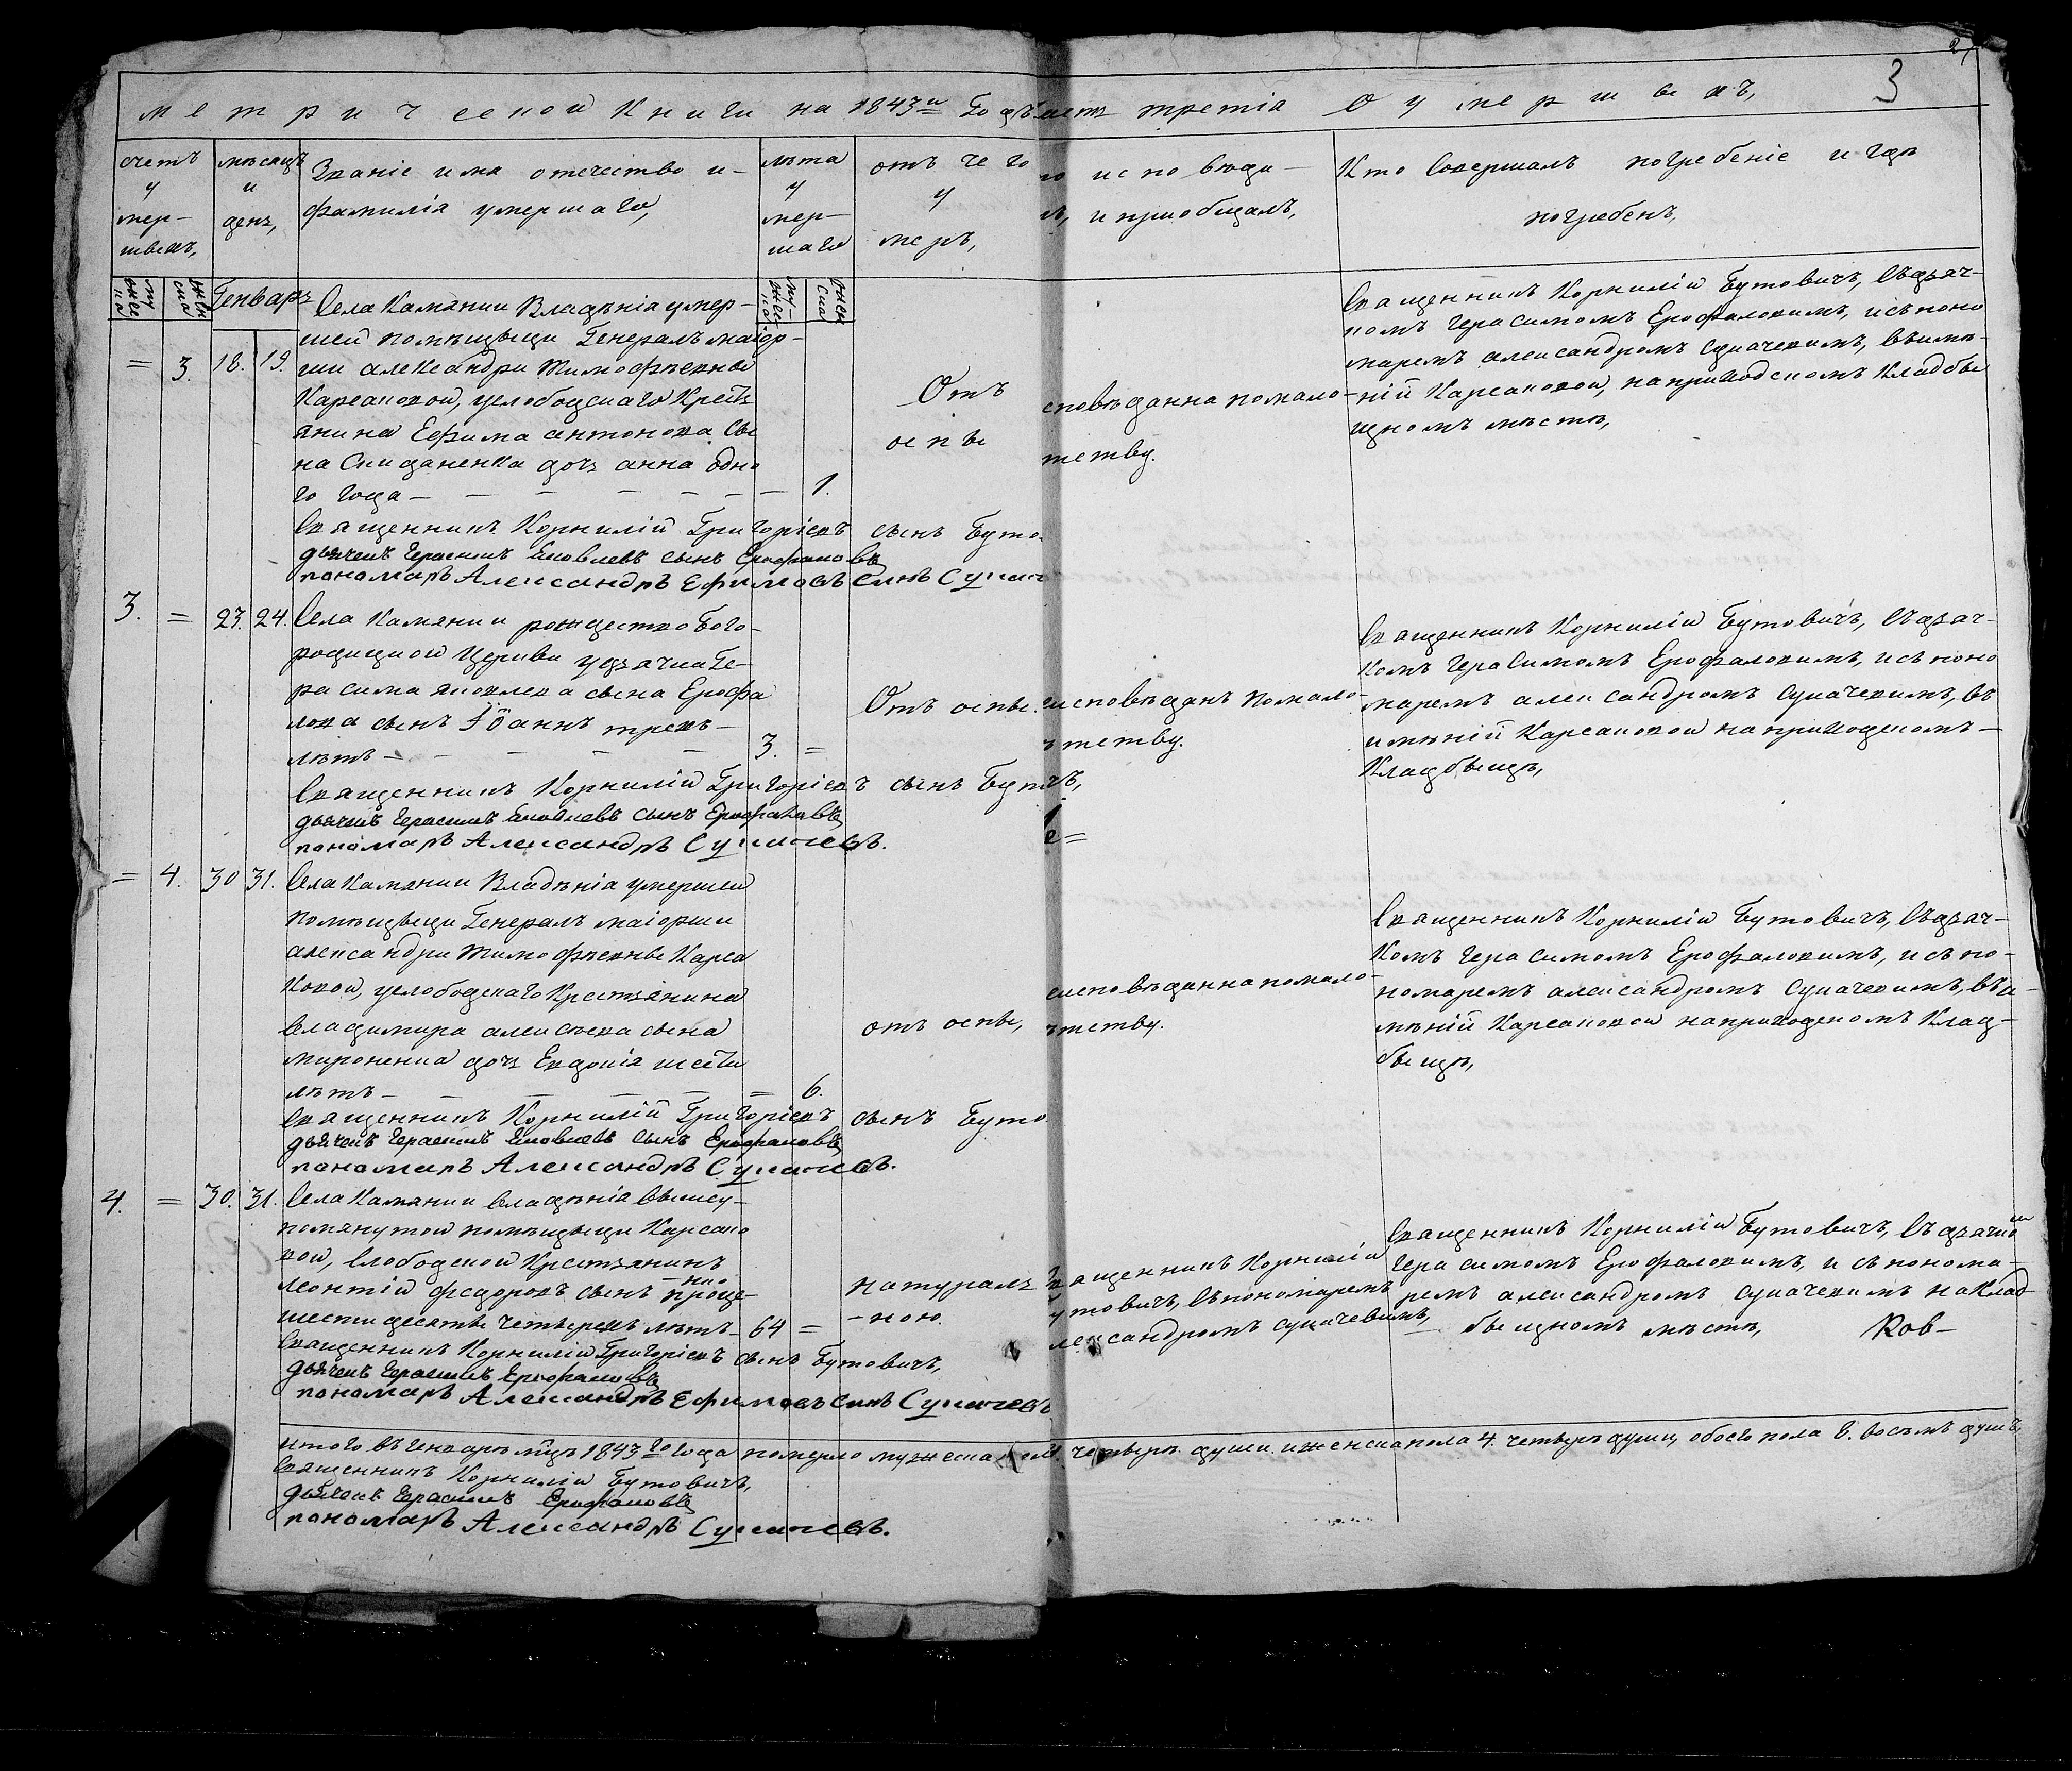 3
метрической Книги на 1843й Годъ часть третія О умершихъ,
счетъ умершихъ,
мѣсяцъ и день,
Званіе имя отечество и фамилія умершаго,
лѣта умершаго
отъ чего умеръ,
исповѣди и пріобщалъ,
Кто Совершалъ погребеніе и гдѣ погребенъ,
Генварь
= 3. 18. 19.
Села Камянки Владѣнія умер-
шей помѣщыци Генералъ маіор-
ши александри Тимофѣевны
Карсаковой, услободскаго Крестъ
янина Ефима антонова сы
на дочь анна одно
го года — 1.
Отъ
оспы
споведанна помало-
тетву.
Священникъ Корнилій Бутовичъ, съдьяч-
комъ Герасимомъ Ерофаловимъ, исъ поно
маремъ александромъ Сукачевимъ, въимѣ-
ній Карсаковой, наприходскомъ Кладбы
щномъ мѣстѣ,
Священникъ Корнилій Григоріевъ сынъ Буто
дьячекъ Герасимъ Яковлевъ сынъ Ерофаловъ
пономарь Александръ Ефимовъ синъ Сукач
3. = 23. 24.
Села Камянки рождество Бого-
родицкой Церкви удьячка Ге-
расима яковлева сына Ерофа
лова сынъ Іоаннъ трехъ
лѣтъ — 3. =
Отъ оспы.
исповѣданъ помало-
тетву.
Священникъ Корнилій Бутовичъ, съдьяч-
комъ Герасимомъ Ерофаловимъ, исъ поно
маремъ александромъ Сукачевимъ, въ
имѣній Карсаковой наприходскомъ —
Кладбыщѣ,
Священникъ Корнилій Григоріевъ сынъ Бутовичъ,
дьячекъ Герасимъ Яковлевъ сынъ Ерофаловъ
пономарь Александръ Сукачевъ.
= 4. 30 31.
Села Камянки Владѣнія умершей
помѣщыци Генералъ маіорши
александри Тимофѣевны Карса
ковой, услободскаго Крестьянина
Владимира алексѣева сына
мироненка дочь Евдокія шести
лѣтъ — = 6.
отъ оспы,
исповѣданна помало-
тетву.
Священникъ Корнилій Бутовичъ, съдьяч-
комъ Герасимомъ Ерофаловимъ, исъ по-
номаремъ александромъ Сукачевимъ, въи-
мѣній Карсаковой наприходскомъ Клад-
быщѣ,
Священникъ Корнилій Григоріевъ сынъ Буто
дьячекъ Герасимъ Яковлевъ сынъ Ерофаловъ
пономарь Александръ Сукачевъ.
4. = 30. 31.
Села Камянки владѣнія вышеу-
помянутой помѣщыци Карсако
вой, слободской Крестьянинъ
леонтій федоровъ сынъ
шестидесяты четырехъ лѣтъ — 64 =
натураль
-ною.
Священникъ Корнилій
Бутовичъ, съпономаремъ
александромъ Сукачевимъ,
Священникъ Корнилій Бутовичъ, съ дьячкомъ
Герасимомъ Ерофаловимъ, и съ понома-
ремъ александромъ Сукачевимъ наКлад
быщномъ мѣстѣ, Ков-
Священникъ Корнилій Григоріевъ сынъ Бутовичъ,
дьячекъ Герасимъ Ерофаловъ
пономарь Александръ Ефимовъ синъ Сукачевъ
итого въ генварѣ мцѣ 1843го года померло мужеска пола 4. четыре души. иженска пола 4. четырѣ души, обоего пола 8. восьмъ душъ,
Священникъ Корнилій Бутовичъ,
дьячекъ Герасимъ Ерофаловъ
пономарь Александръ Сукачевъ.